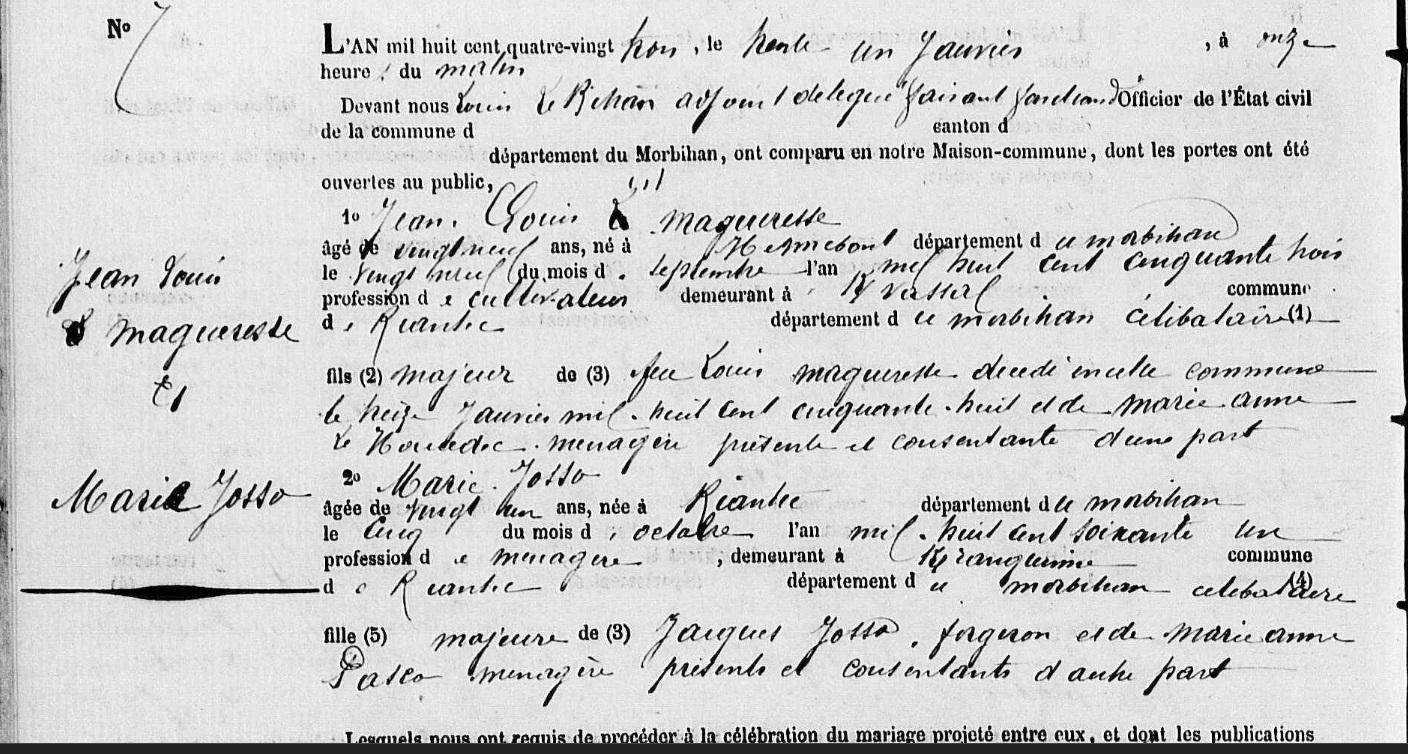 No 7
L'AN mil huit cent quatre-vingt trois, le trente un Janvier, à onze
heures du matin
Devant nous Louis Le Bihan adjoint delegué faisant fonctions d'Officier de l'État civil
de la commune d canton d
département du Morbihan, ont comparu en notre Maison-commune, dont les portes ont été
ouvertes au public,
1o Jean Louis magueresse
âgé de vingt neuf ans, né à Hennebont département du morbihan
le vingt neuf du mois de Septembre l'an mil huit cent cinquante trois
profession de cultivateur demeurant à Kvassal commune
de Riantec département du morbihan célibataire (1)
fils (2) majeur de (3) feu Louis magueresse décédé en cette commune
le treize Janvier mil huit cent cinquante huit et de marie anne
Le Houedec menagère présente et consentante d'une part
2o Marie Josso
âgée de vingt un ans, née à Riantec département du morbihan
le cinq du mois d'octobre l'an mil huit cent soixante un
profession de menagère, demeurant à commune
de Riantec département du morbihan celibataire (4)
fille (5) majeure de (3) Jacques Josso, forgeron et de marie anne
Pasco menagère présents et consentants d'autre part
Lesquels nous ont requis de procéder à la célébration du mariage projeté entre eux, et dont les publications
Jean Louis
magueresse
Et
Marie Josso